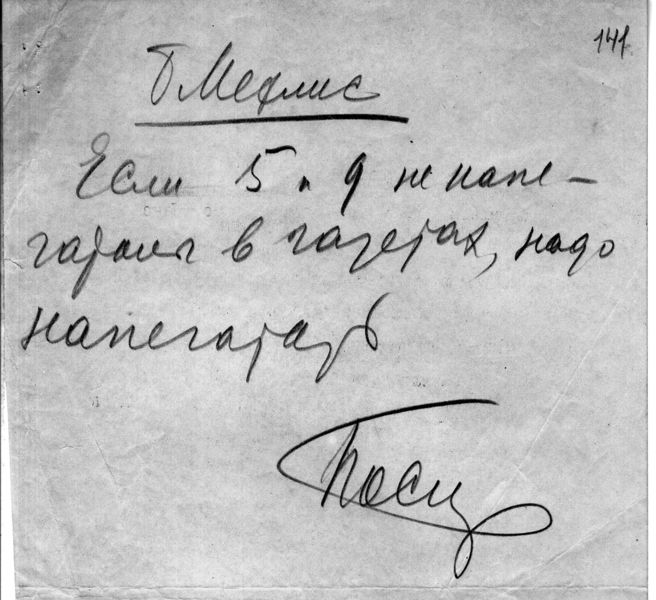 141
т Мехлис
Если 5 и 9 не напе-
чатаны в газетах, надо
напечатать